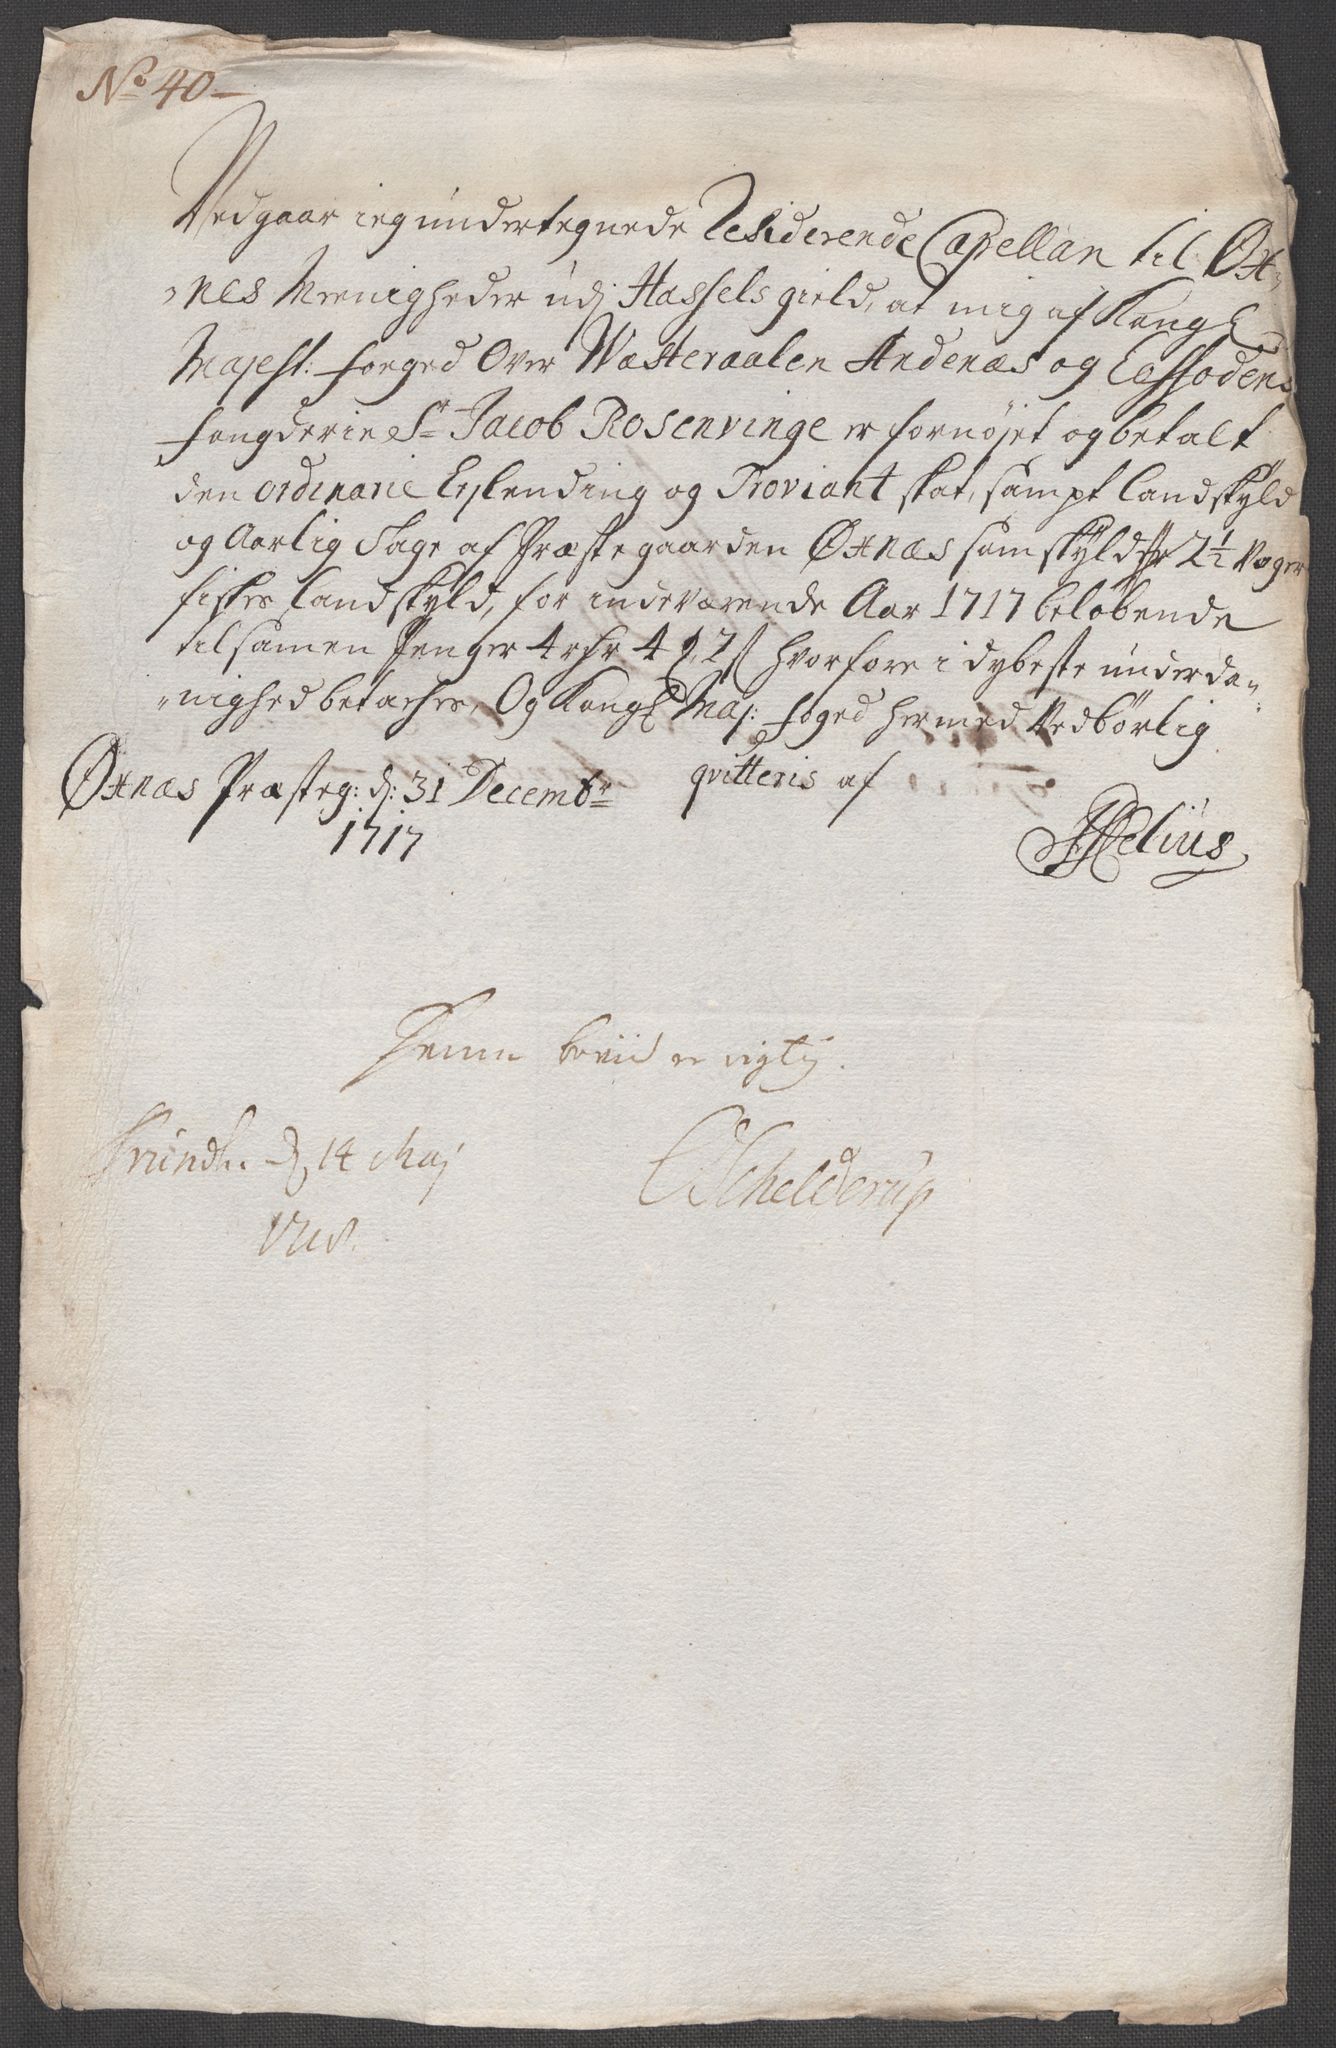 No 40
Vedgaar ieg undertegnede Residerende Capellan til Øx-
nes Menigheder udj Hassels gield, at mig af Kongl
Majest: foged Over Wæsteraalen Andenæs og Loffodens
fougderie Sr Jacob Rosenvinge er fornøjet og betalt
den ordinarie Leylending og Proviant skat, sampt landskyld
og Aarlig Tage af Præstegaarden Øxnæs som skylder 2½ Voger
fiskes Landskyld, for indeværende Aar 1717 beløbende
tilsamen Penger 4 rdr 4 2 s hvorfore i dybeste underda-
nighed betaches, Og Kongl Maj: foged hermed Vedbørlig
qvitteris af
Øxnæs Præsteg: d: 31 Decembr
1717
Helius
Denne beviis er rigtig.
Trundh. d 14 Maj
1718.
Schelderup